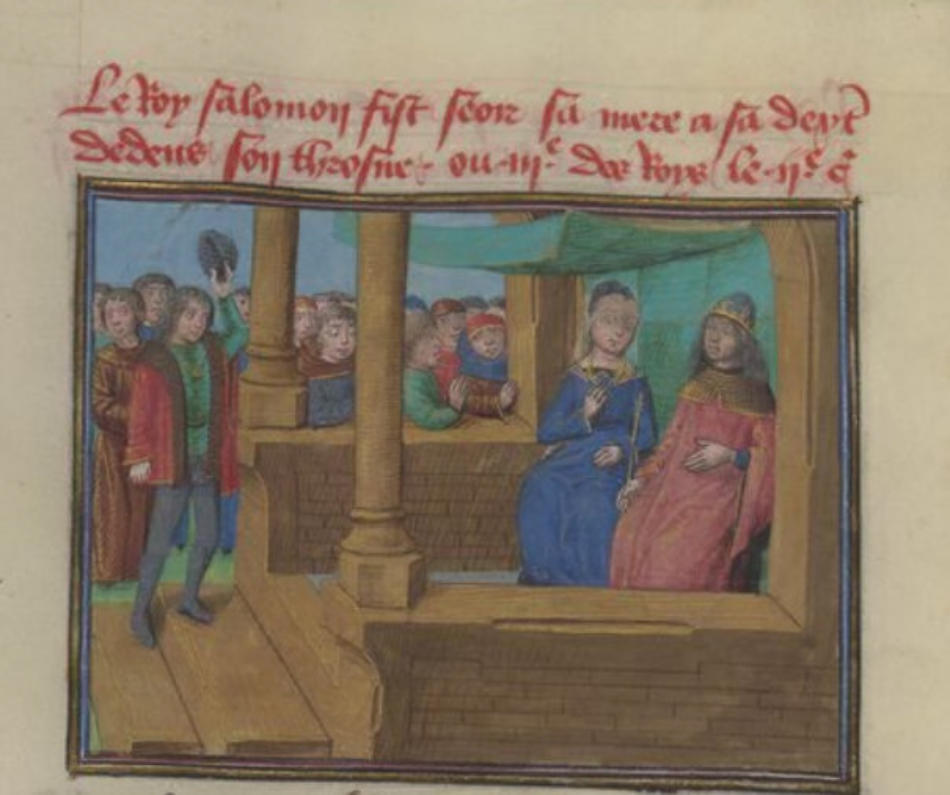 Le Roy salomon fist seoir sa mere a sa dext
dedens son throsne. ou .iii.e des Roys le .ii.e c